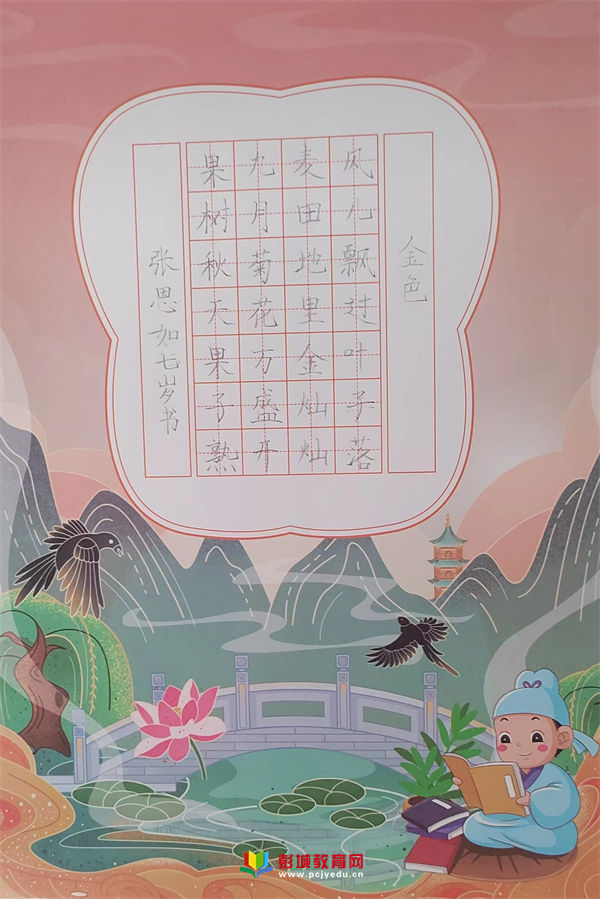 金色
风儿飘过叶子落
麦田地里金灿灿
九月菊花方盛开
果树秋天果子熟
张思如七岁书
彭城教育网
www.pcjyedu.cn